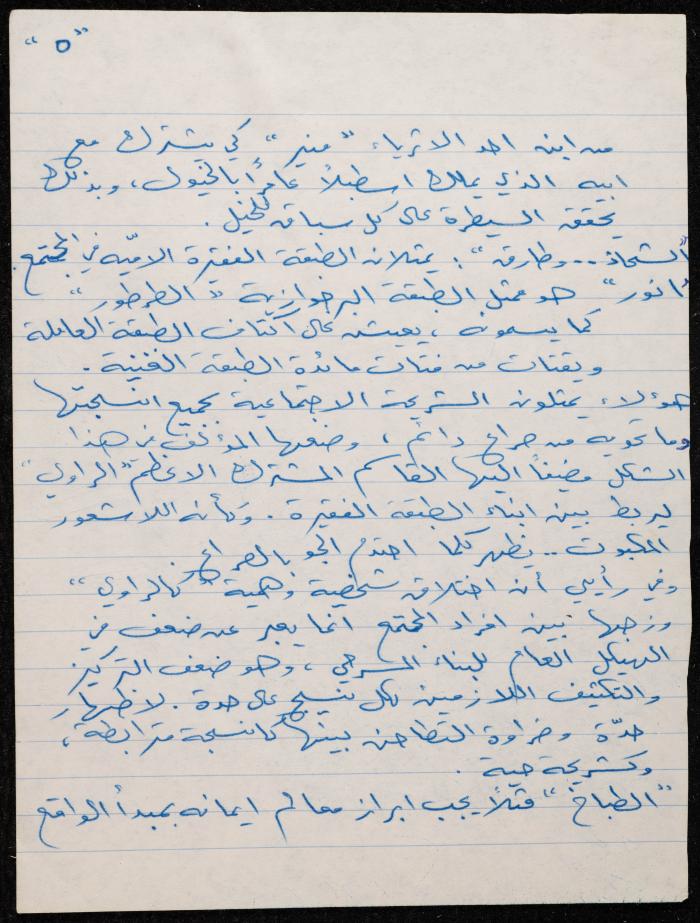 "٥"
من ابنه احد الاثرياء "منير" كي يشترك مع
ابيه الذي يملك اسطبلاً عامراً بالخيول، وبذلك
يحقق السيطرة على كل سباق للخيل.
"الشحاذ... وطارق": يمثلان الطبقة الفقيرة الاميّة في المجتمع.
"انور" هو ممثل الطبقة البرجوازية "الطرطور"
كما يسمونه، يعيش على اكتاف الطبقة العاملة
ويقتات من فتات مائدة الطبقة الغنية.
هؤلاء يمثلون الشريحة الاجتماعية بجميع انسجتها
وما تحويه من صراع دائم، وضعها المؤلف في هذا
الشكل مضيفاً اليها القاسم المشترك الاعظم "الراوي"
ليربط بين ابناء الطبقة الفقيرة. وكأنه اللاشعور
المكبوت.. يظهر كلما احتدم الجو بالصراع.
وفي رأيي أن اختلاق شخصية وهمية "كالراوي"
وزجها بين افراد المجتمع انما يعبر عن ضعف في
الهيكل العام للبناء المسرحي، وهو ضعف التركيز
والتكثيف اللازمين لكل نسيج على حدة. لاظهار
حدّة وضراوة التطاحن بينها كانسجة مترابطة،
وكشريحة حية.
"الطباخ" مثلاً يجب ابراز معالم ايمانه بمبدأ الواقع